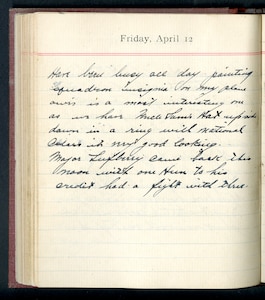 Friday, April 12
Have been busy all day painting
squadron insignia on my plane
ours is a most interesting one
as we have Uncle Sam's Hat upside
down in a ring with national
colors it very good looking.
Major Lufbery came back this
noon with one Hun to his
credit had a fight with three.